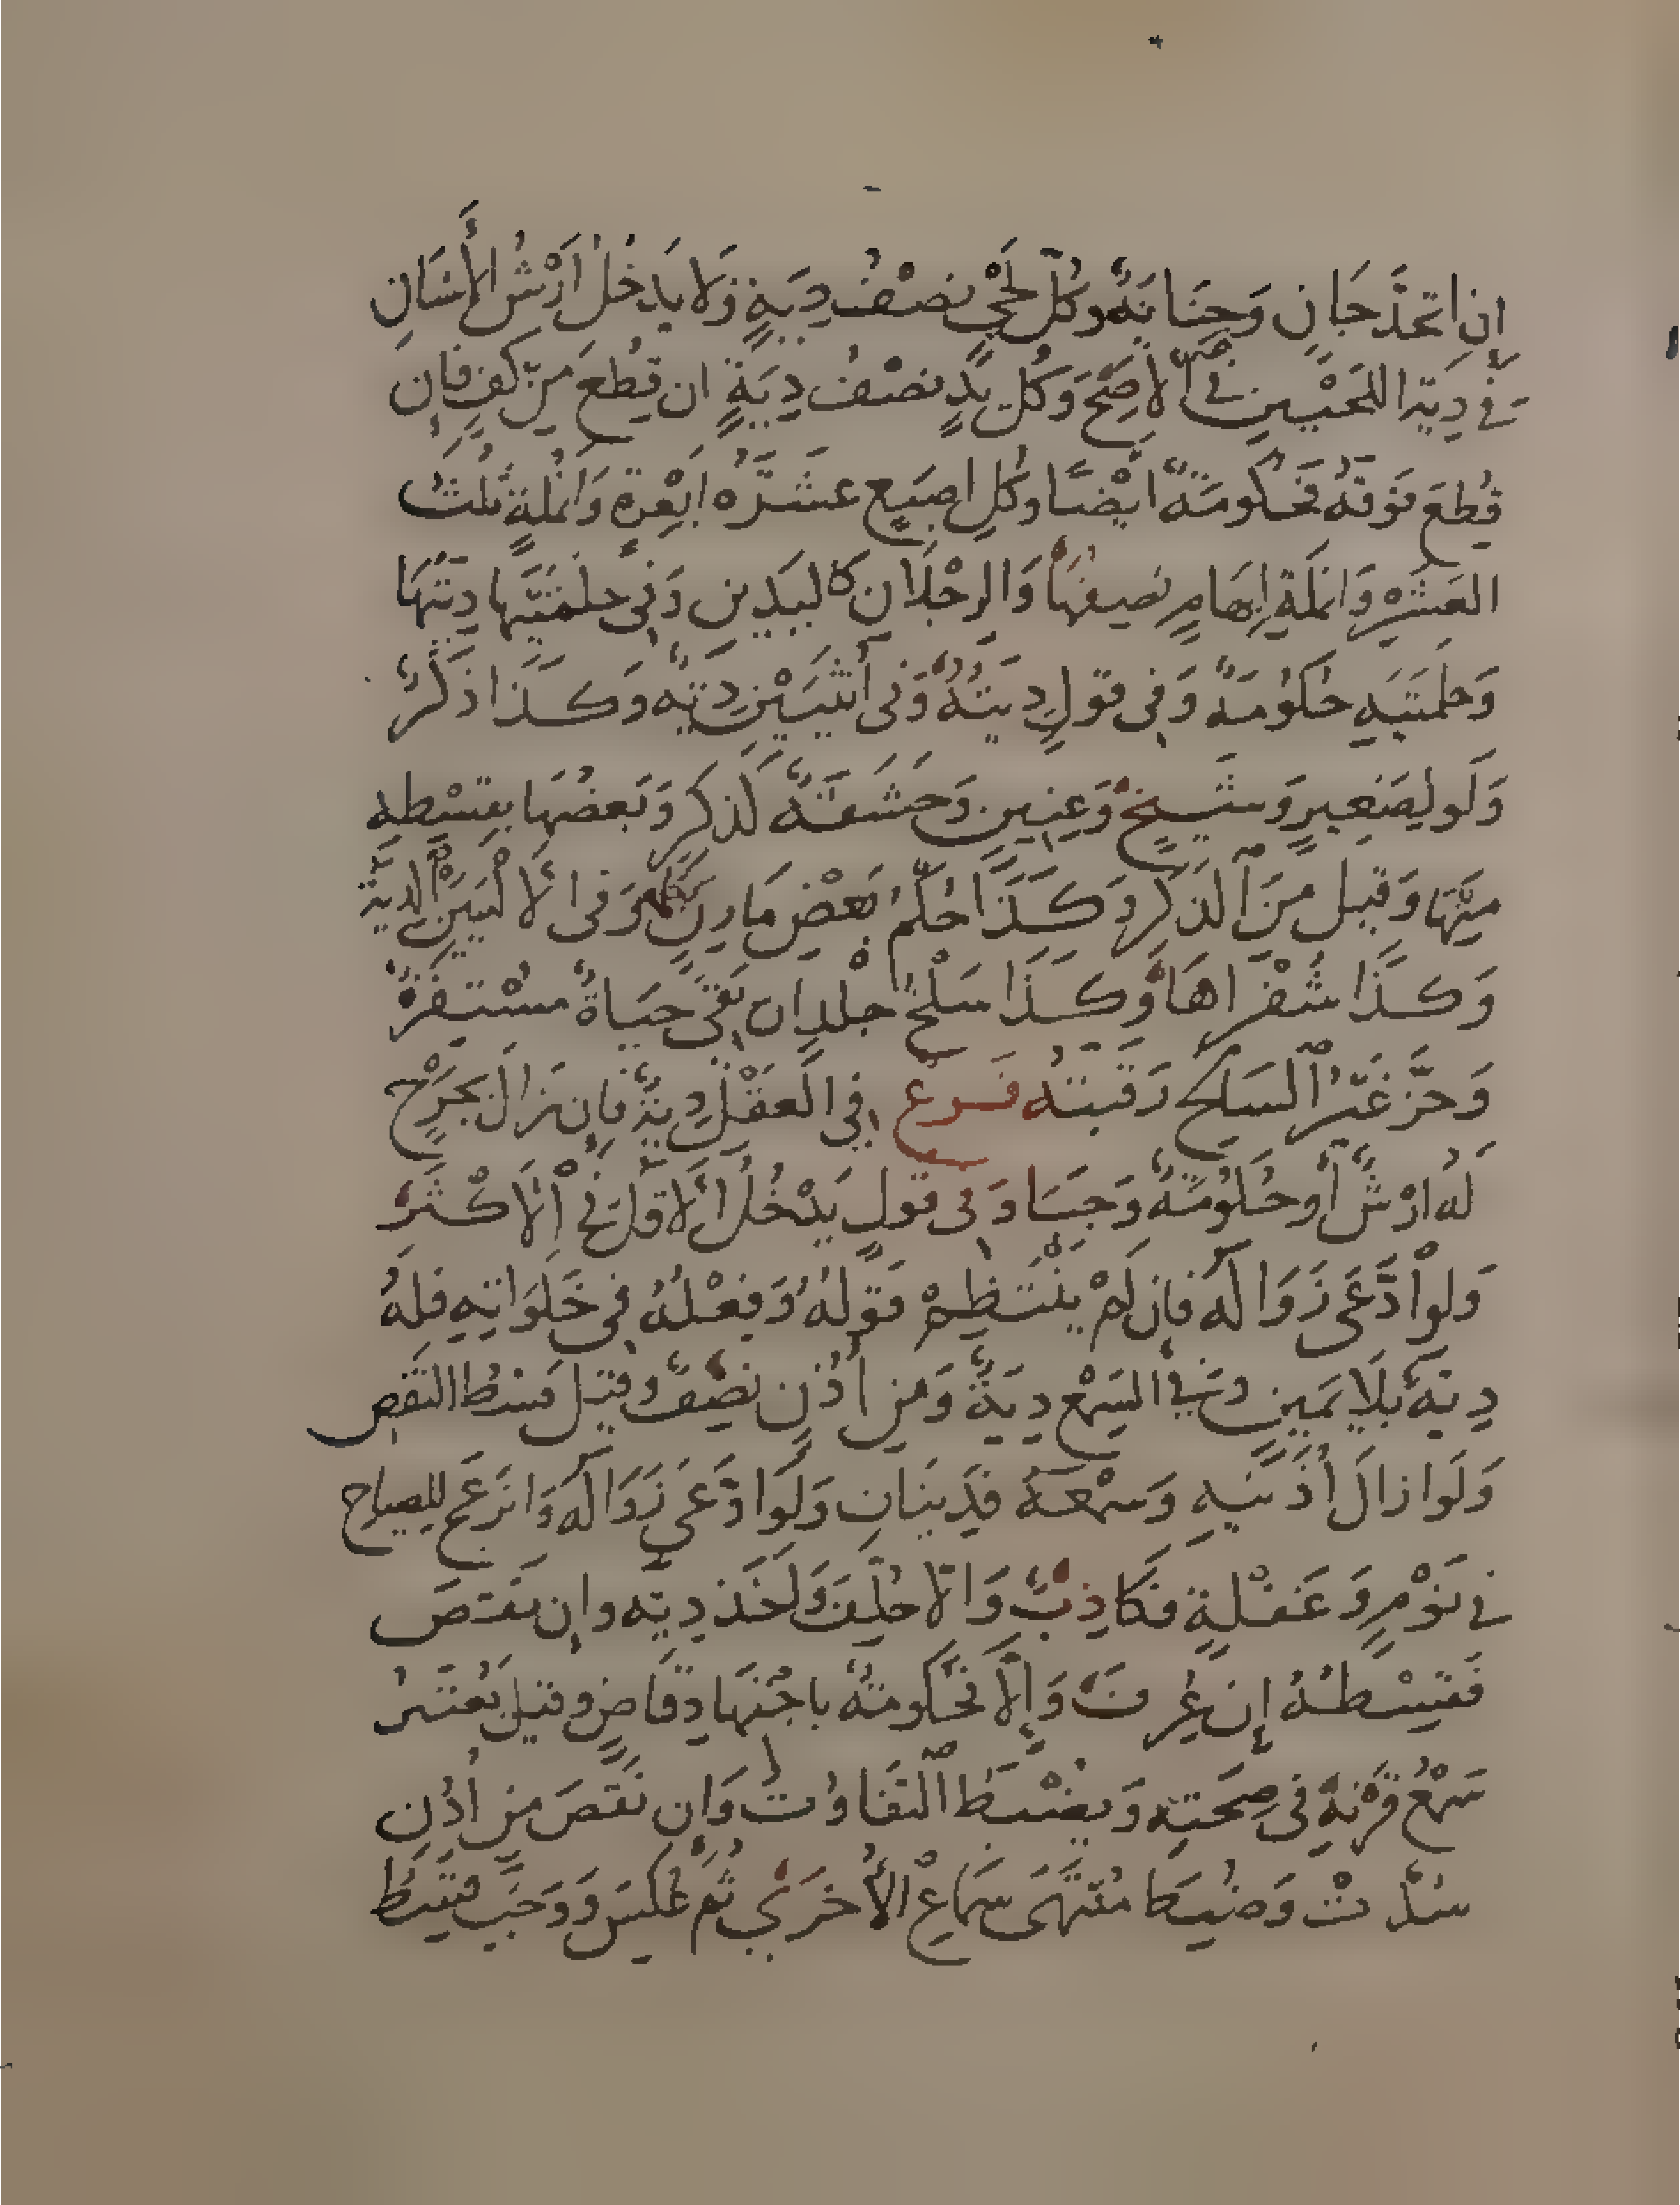 إن اتحد جان وجناية وكل لحي نصف دية ولا يدخل أرش الأسنان
في دية اللحيين في الأصح وكل يد نصف دية ان قطع من كف فإن
قطع فوقه فحكومة أيضا وكل اصبع عشرة ابعرة وانملة ثلث
العشرة وانملة إبهام نصفها والرجلان كاليدين وفي حلمتيها ديتها
وحلمتيه حكومة وفي قول ديته وفي أنثيين دية وكذا ذكر
ولو لصغير وشيخ وعنين وحشفة كذكر وبعضها بقسطه
منها وقيل من الذكر وكذا حكم بعض مارن وحلمة وفي الاليين الدية
وكذا شفراها وكذا سلخ جلد ان بقي حياة مستقرة
وحز غير السالخ رقبته فرع في العقل دية فإن زال بجرح
له ارش أو حكومة وجبا وفي قول يدخل الاقل في الاكثر
ولو ادعى زواله فإن لم ينتظم قوله وفعله في خلواته فله
دية بلا يمين وفي السمع دية ومن أذن نصف وقيل قسط النقص
ولو ازال أذنيه وسمعه فديتان ولو ادعى زواله وانزعج للصياح
في نوم وغفلة فكاذب والا حلف واخذ دية وإن نقص
فقسطه إن عرف وإلا فحكومة باجتهاد قاض وقيل يعتبر
سمع قرنه في صحته ويضبط التفاوت وان نقص من أذن
سدت وضبط منتهى سماع الأخرى ثم عكس ووجب قسط